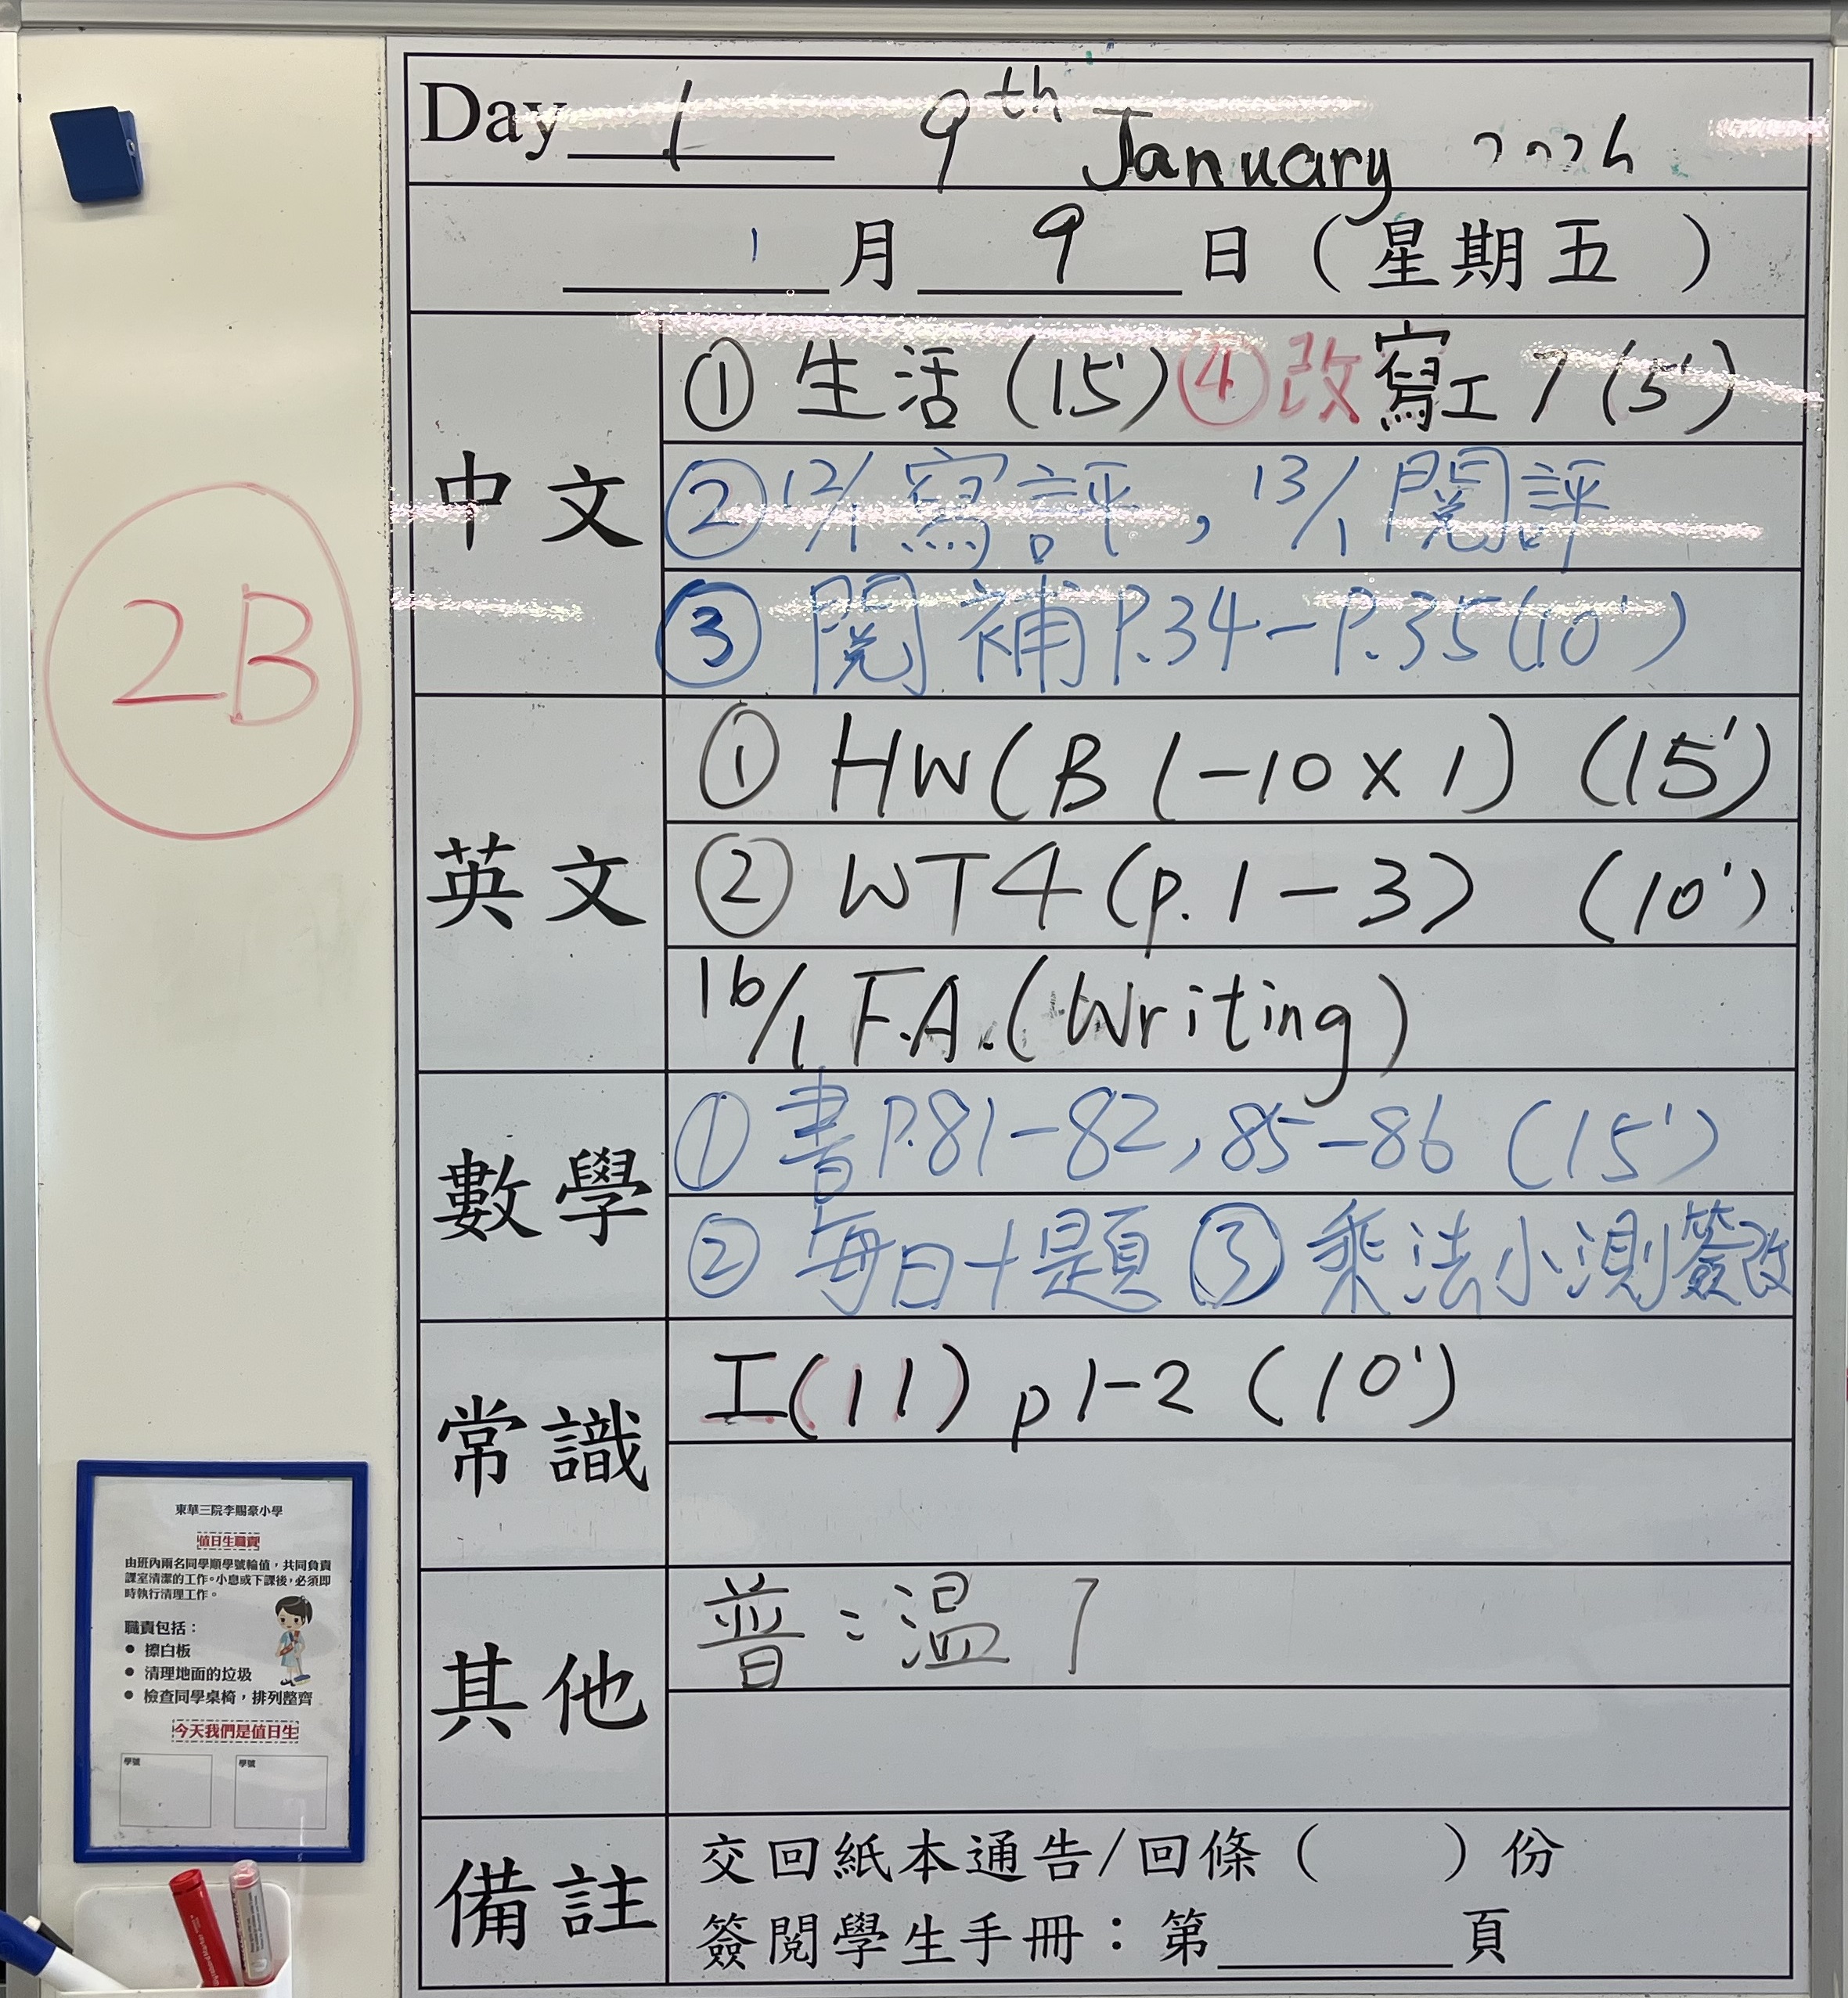 Day 1 9th January 2026
1 月 9 日 ( 星期五 )
中文
① 生活 (15') ④ 改 寫工 7 (5')
② 12/1 寫評, 13/1 閱評
③ 閱補 P.34-P.35 (10')
英文
① HW (B 1-10 x 1) (15')
② WT4 (p.1-3) (10')
16/1 F.A. (Writing)
數學
① 書 P.81-82, 85-86 (15')
② 每日十題 ③ 乘法小測簽改
常識
工(11) p1-2 (10')
其他
普:溫7
備註
交回紙本通告/回條( )份
簽閱學生手冊:第 頁
2B
東華三院李賜豪小學
值日生職責
由班內兩名同學順學號輪值,共同負責
課室清潔的工作。小息或下課後,必須即
時執行清理工作。
職責包括:
● 擦白板
● 清理地面的垃圾
● 檢查同學桌椅,排列整齊
今天我們是值日生
學號 學號